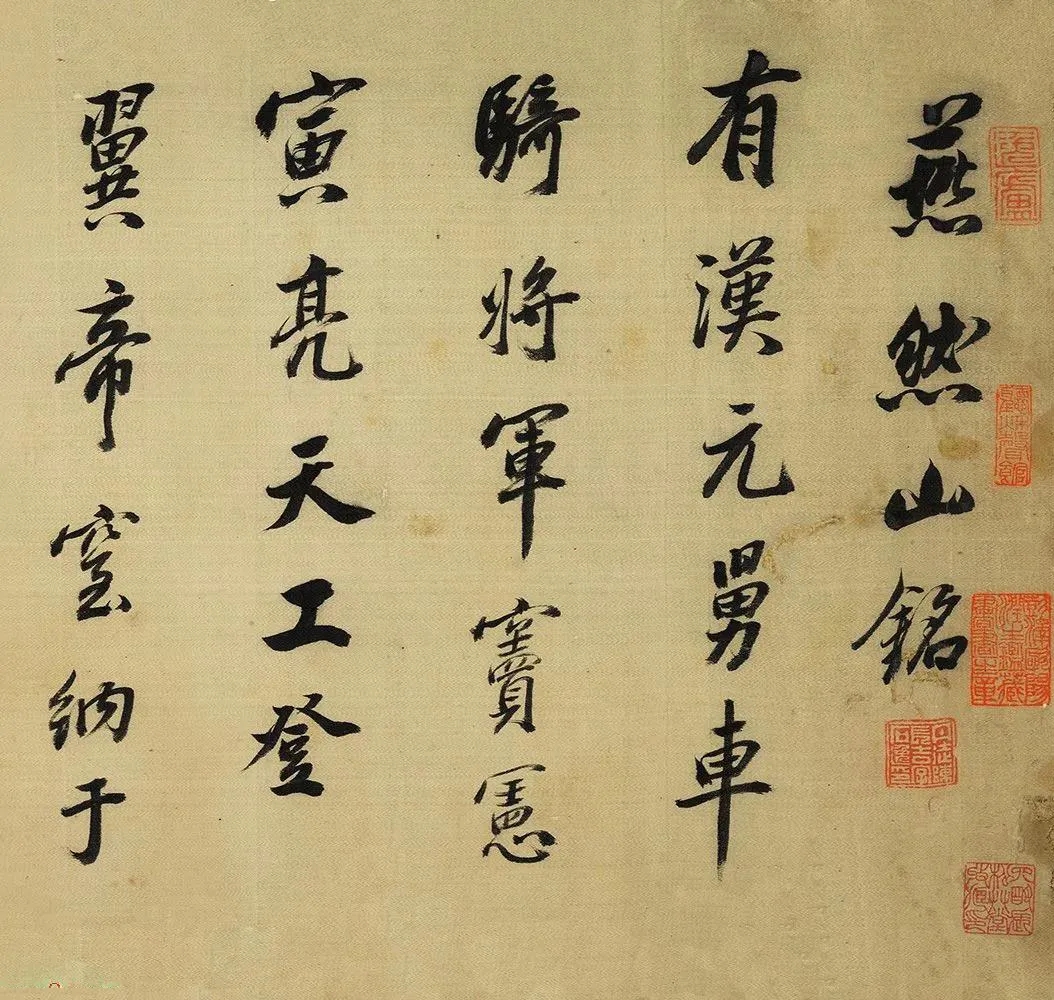 燕然山銘
有漢元舅車
騎將軍竇憲
寅亮天工登
翼帝室納于